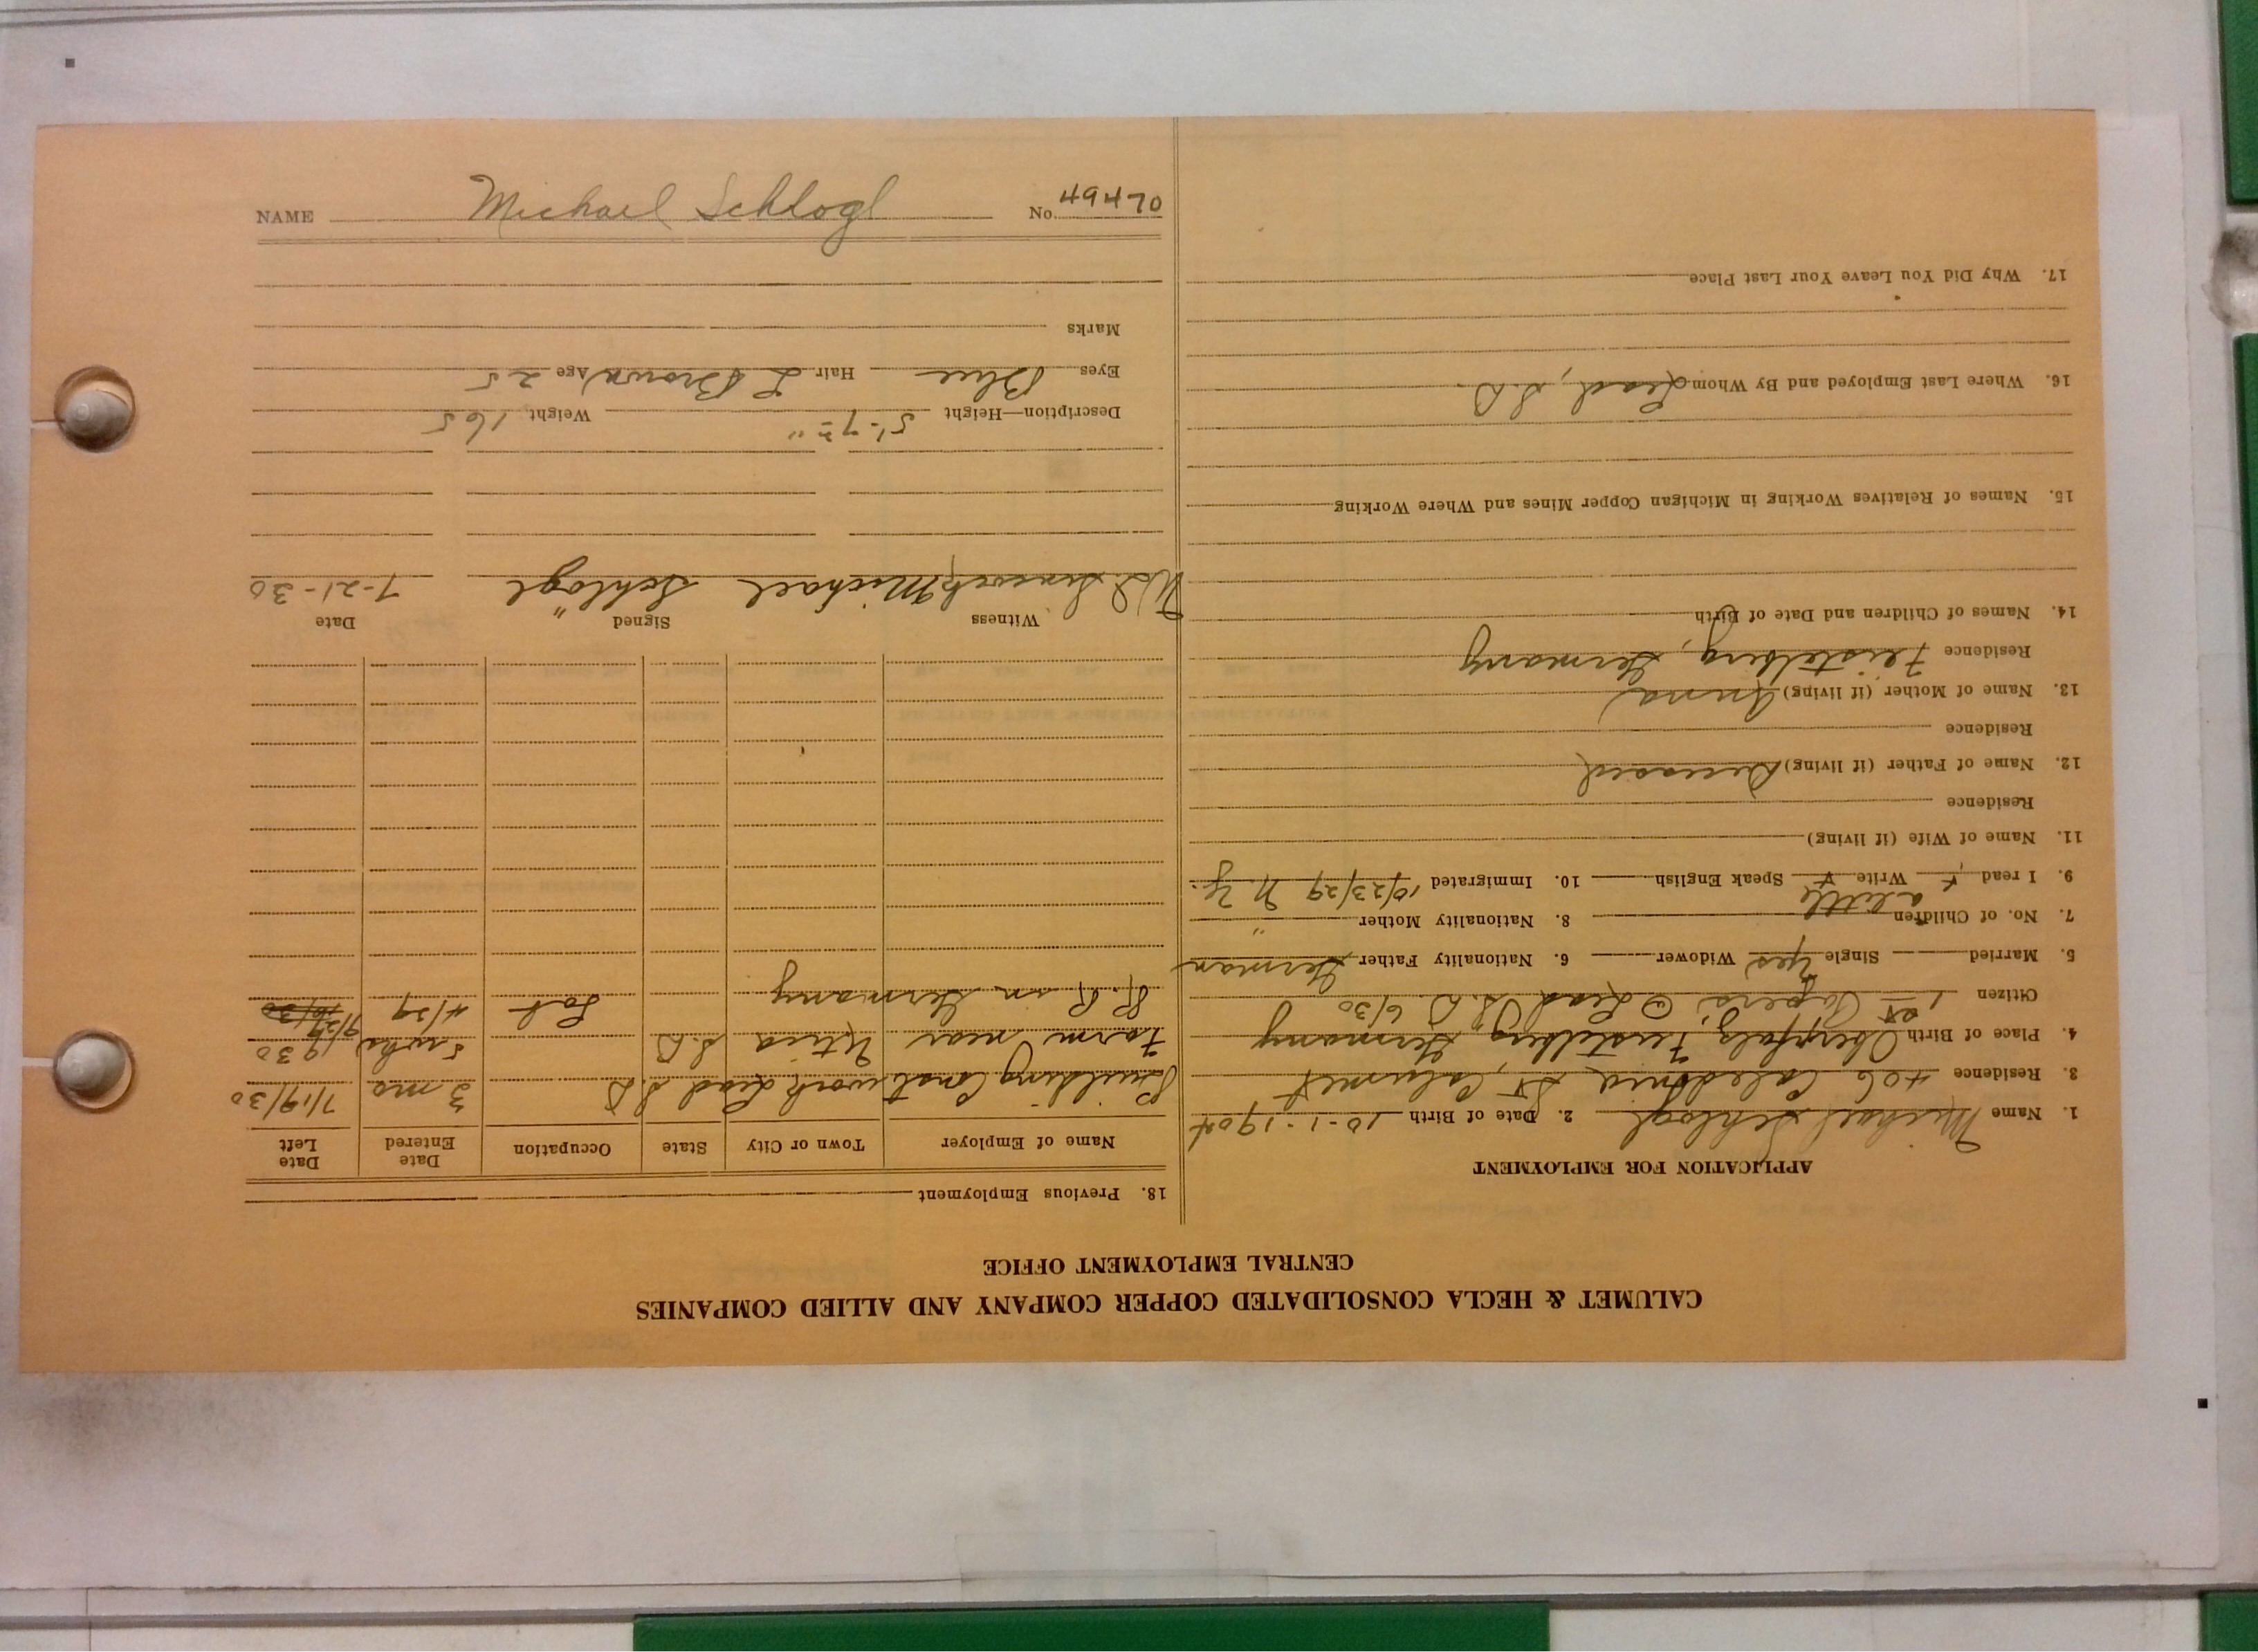 CALUMET & HECLA CONSOLIDATED COPPER COMPANY AND ALLIED COMPANIES
CENTRAL EMPLOYMENT OFFICE
APPLICATION FOR EMPLOYMENT
1. Name Michael Schlogl 2. Date of Birth 10-1-1904
3. Residence 406 Caledonia St, Calumet
4. Place of Birth Oberpfalz, Feistelberg, Germany
Citizen 1st Papers @ Lead S.D. 6/30
5. Married Single Yes Widower 6. Nationality Father German
7. No. of Children 8. Nationality Mother "
a little
9. I read Write Speak English 10. Immigrated 10/23/29 N.Y.
11. Name of Wife (if living)
Residence
12. Name of Father (if living) Deceased
Residence
13. Name of Mother (if living) Anna
Residence Feistelberg, Germany
14. Names of Children and Date of Birth
15. Names of Relatives Working in Michigan Copper Mines and Where Working
16. Where Last Employed and By Whom Lead, S.D.
17. Why Did You Leave Your Last Place
18. Previous Employment
Name of Employer Town or City State Occupation Date Entered Date Left
Building Const. work Lead S.D 3 mo 7/19/30
Farm near Utica S.D 5 wks 1930
R.R. in Germany Lab 4/29 9/29
Witness Signed Date
Michael Schlögl 7-21-30
Description—Height 5'-7" Weight 165
Eyes Blue Hair L Brown Age 25
Marks
NAME Michael Schlogl No. 49470